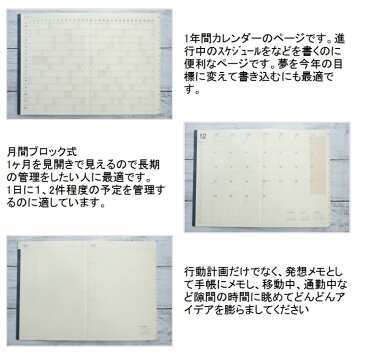 1年間カレンダーのページです。進
行中のスケジュールをなどを書くのに
便利なページです。夢を今年の目
標に変えて書き込むにも最適で
す。
月間ブロック式
1ヶ月を見開きで見えるので長期
の管理をしたい人に最適です。
1日に1、2件程度の予定を管理す
るのに適しています。
12
行動計画だけでなく、発想メモとし
て手帳にメモし、移動中、通勤中な
ど隙間の時間に眺めてどんどんア
イデアを膨らましてください